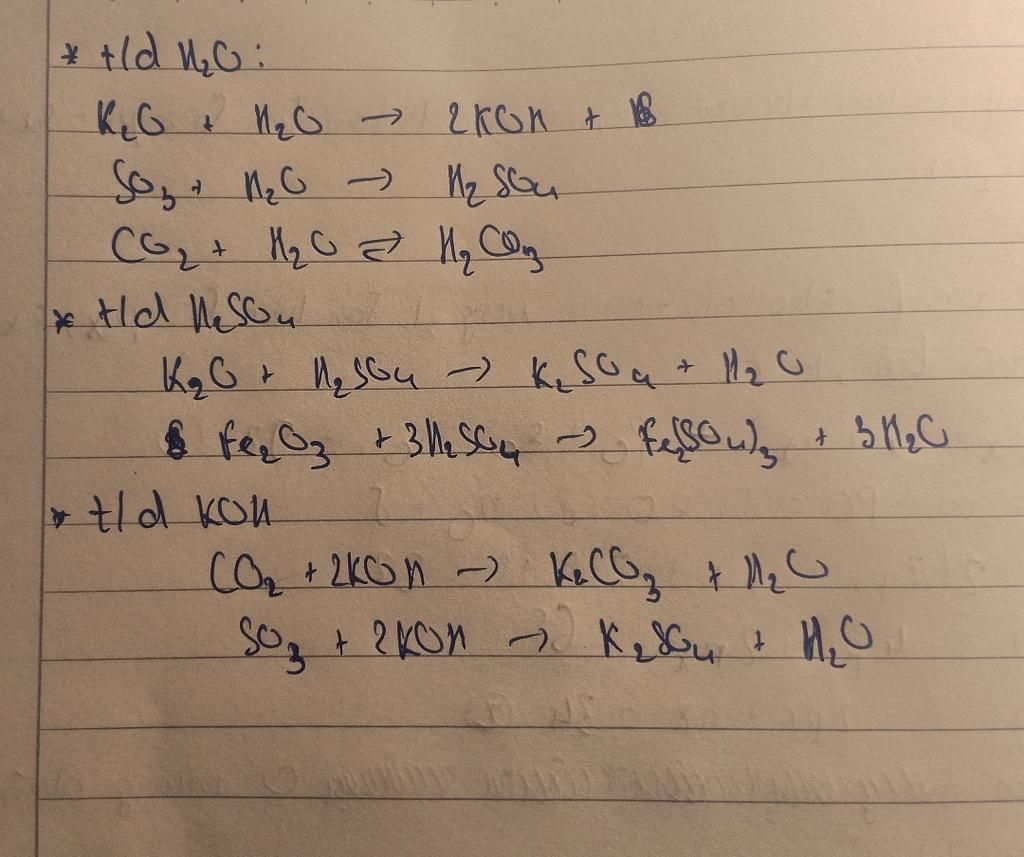 * t/d H₂O:
K₂O + H₂O → 2KOH +
SO₃ + H₂O → H₂SO₄
CO₂ + H₂O ⇌ H₂CO₃
* t/d H₂SO₄
K₂O + H₂SO₄ → K₂SO₄ + H₂O
Fe₂O₃ + 3H₂SO₄ → Fe₂(SO₄)₃ + 3H₂O
* t/d KOH
CO₂ + 2KOH → K₂CO₃ + H₂O
SO₃ + 2KOH → K₂SO₄ + H₂O